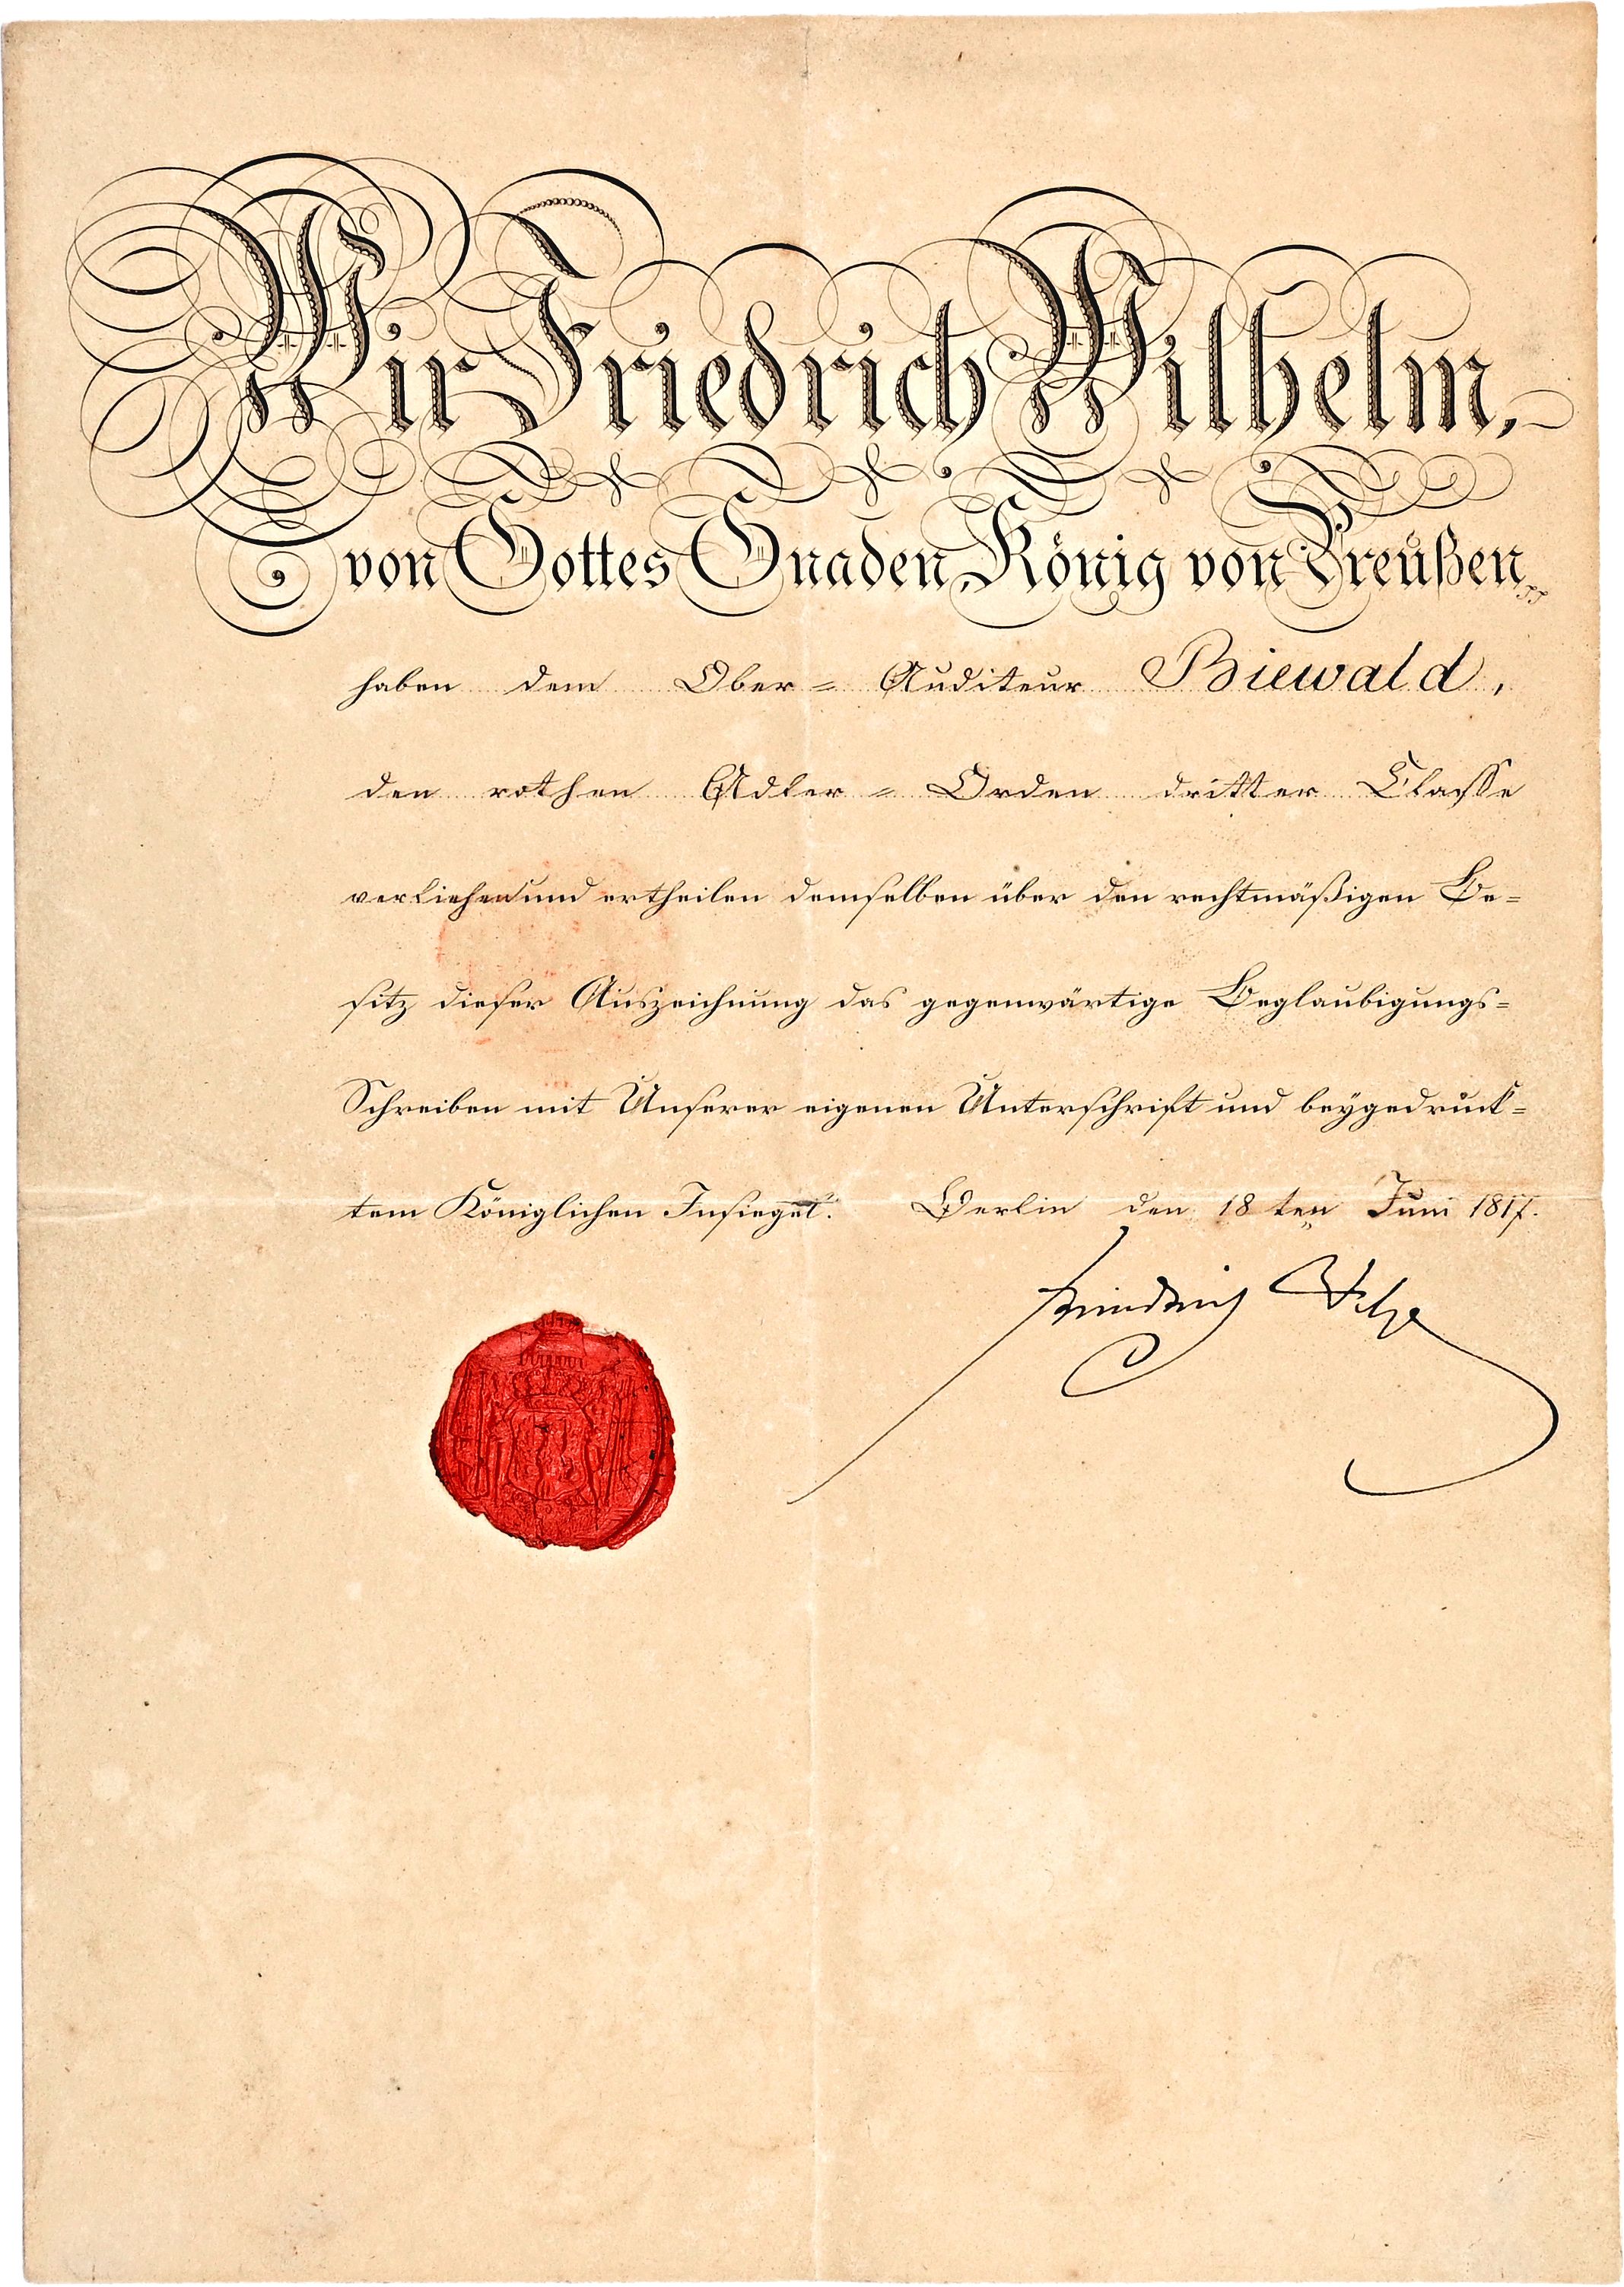 Wir Friedrich Wilhelm,
von Gottes Gnaden König von Preußen
haben dem Ober= Auditeur Biewald,
den rothen Adler= Orden dritter Classe
verliehen und ertheilen demselben über den rechtmäßigen Be=
sitz dieser Auszeichnung das gegenwärtige Beglaubigungs=
Schreiben mit Unserer eigenen Unterschrift und beygedruck=
tem Königlichen Insiegel. Berlin den 18 ten Juni 1817.
Friedrich Wilhelm